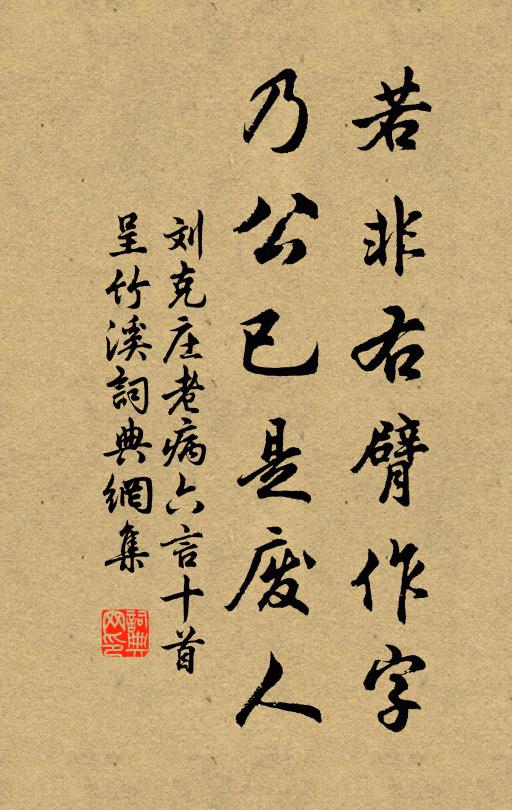 若非右臂作字
乃公已是废人
刘克庄老病六言十首
呈竹溪詞典網集
詞典
网印